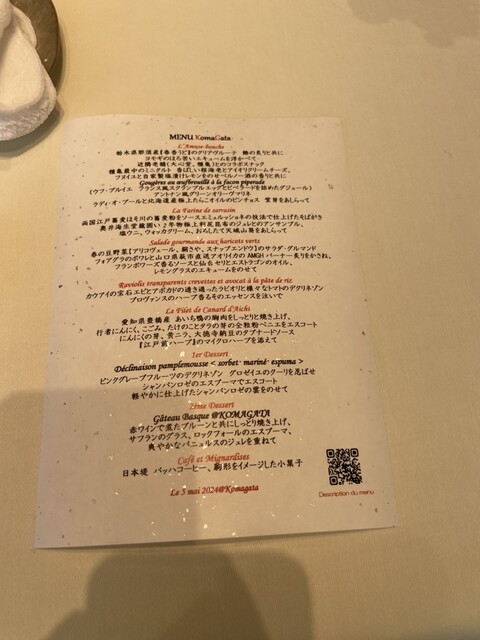 MENU KomaGata
L'Amuse-bouche
栃木県那須産『春香うど』のクリアヴルーテ 鮪の炙りと共に
ヨモギのほろ苦いエキュームを浮かべて
近隣老舗(大心堂、種亀)とのコラボスナック
種亀最中のミニタルト 香ばしい桜海老とアイオリクリームチーズ、
フヌイユと自家製塩漬けレモンをのせペルノー酒の香りと共に
Gougères au œuf brouillé à la façon piperade
(ウフ・ブルイエ フランス風スクランブルエッグとピペラードを詰めたグジェール)
アントナン風グリーンオリーヴマリネ
ラディ・オ・ブールと北海道産極上たらこオイルのピンチョ 紫芽をあしらって
La Farine de sarrasin
両国江戸蕎麦ほそ川の蕎麦粉をソースエミュルショネの技法で仕上げたそばがき
奥井海生堂蔵囲い2年物極上利尻昆布のジュレとのアンサンブル、
塩ウニ、ウォッカクリーム、おろしたて天城山葵をあしらって
Salade gourmande aux haricots verts
春の豆野菜『アリコヴェール、絹さや、スナップエンドウ』のサラダ・グルマンド
フォアグラのポワレと山口県萩市直送アオリイカのAMGH バーナー炙りをかさね、
フランボワーズ香るソースと仙台セリとエストラゴンのオイル、
レモングラスのエキュームをのせて
Raviolis transparents crevettes et avocat à la pâte de riz
カウアイの宝石エビとアボカドの透き通ったラビオリと様々なトマトのデクリネゾン
プロヴァンスのハーブ香るそのエッセンスを注いで
Le Filet de Canard d'Aichi
愛知県豊橋産 あいち鴨の胸肉をしっとりと焼き上げ、
行者にんにく、こごみ、たけのことタラの芽の全粒粉ベニエをエスコート
にんにくの芽、黄ニラ、大徳寺納豆のタプナードソース
『江戸前ハーブ』のマイクロハーブを添えて
1er Dessert
Déclinaison pamplemousse < sorbet· mariné· espuma >
ピンクグレープフルーツのデクリネゾン グロゼイユのクーリを忍ばせ
シャンパンロゼのエスプーマでエスコート
軽やかに仕上げたシャンパンロゼの雲をのせて
2ème Dessert
Gâteau Basque @KOMAGATA
赤ワインで煮たプルーンと共にしっとり焼き上げ、
サフランのグラス、ロックフォールのエスプーマ、
爽やかなバニュルスのジュレを重ねて
Café et Mignardises
日本堤 バッハコーヒー、駒形をイメージした小菓子
Le 5 mai 2024@Komagata
Description du menu